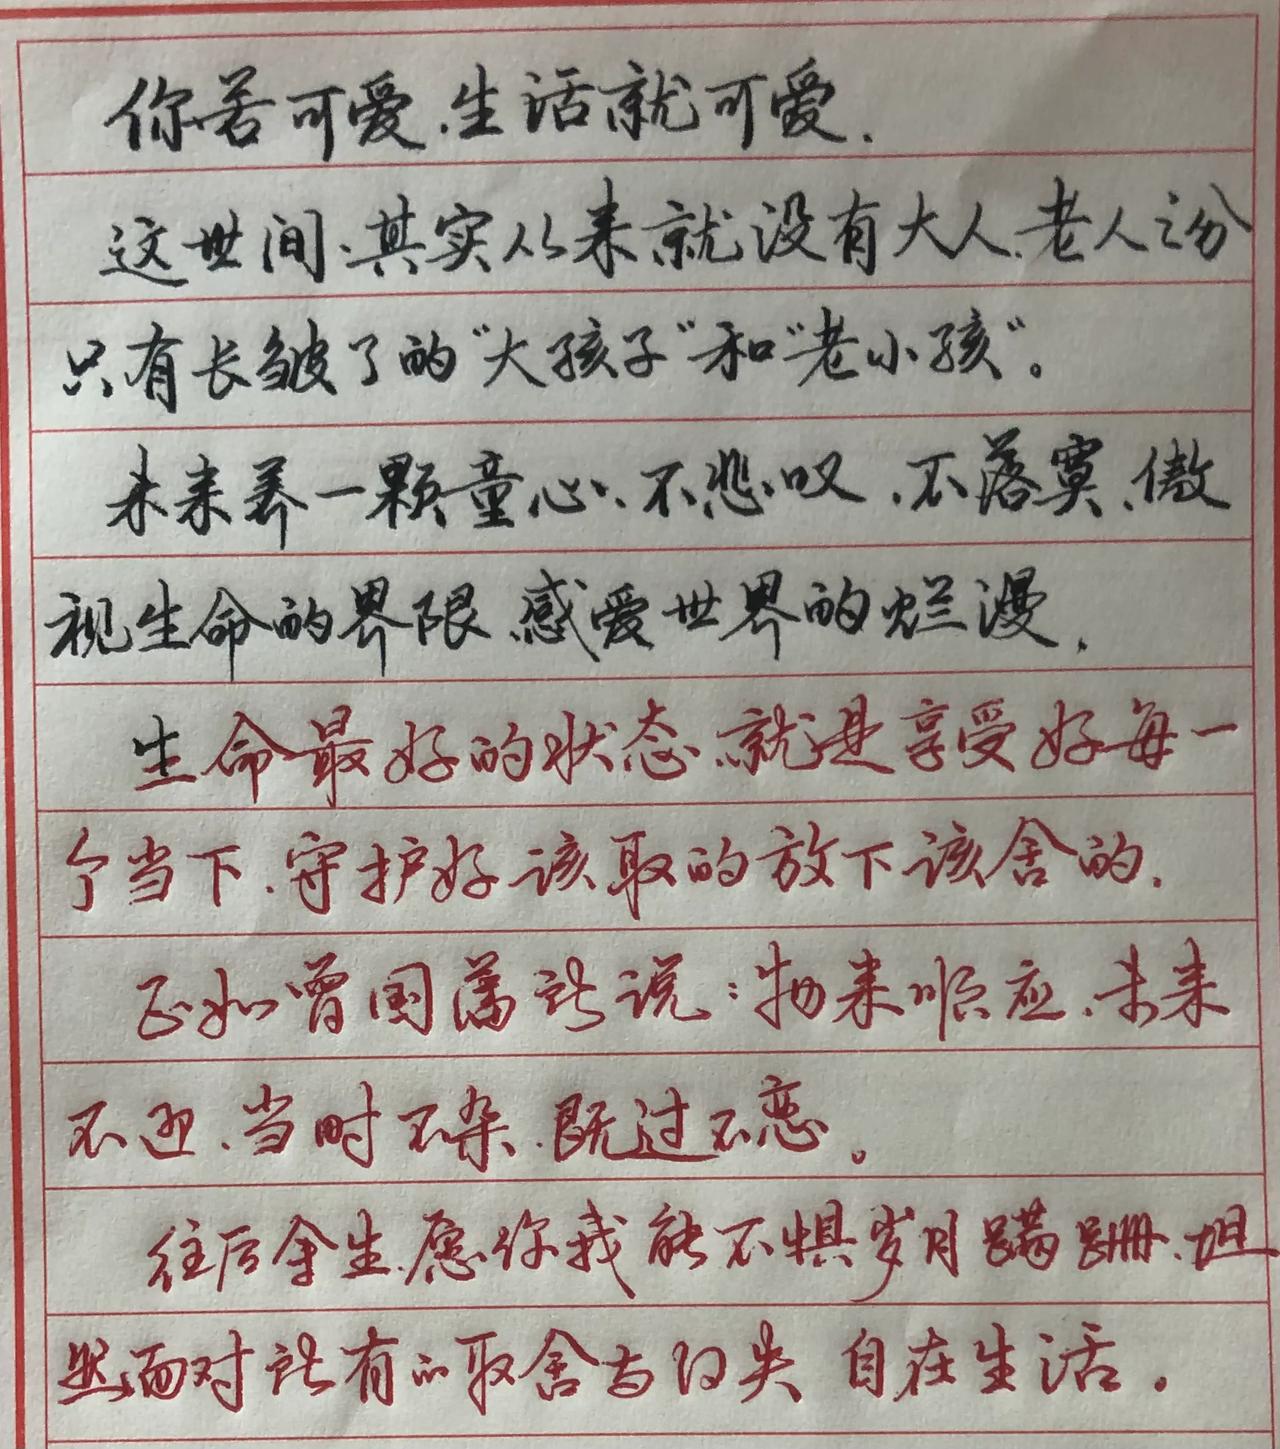 你若可爱,生活就可爱.
这世间,其实从来就没有大人,老人之分
只有长皱了的“大孩子”和“老小孩”。
未来养一颗童心,不悲叹,不落寞,傲
视生命的界限,感爱世界的烂漫.
生命最好的状态,就是享受好每一
个当下,守护好该取的放下该舍的.
正如曾国藩所说:物来顺应,未来
不迎,当时不杂,既过不恋。
往后余生,愿你我能不惧岁月蹒跚,坦
然面对所有的取舍与得失 自在生活。